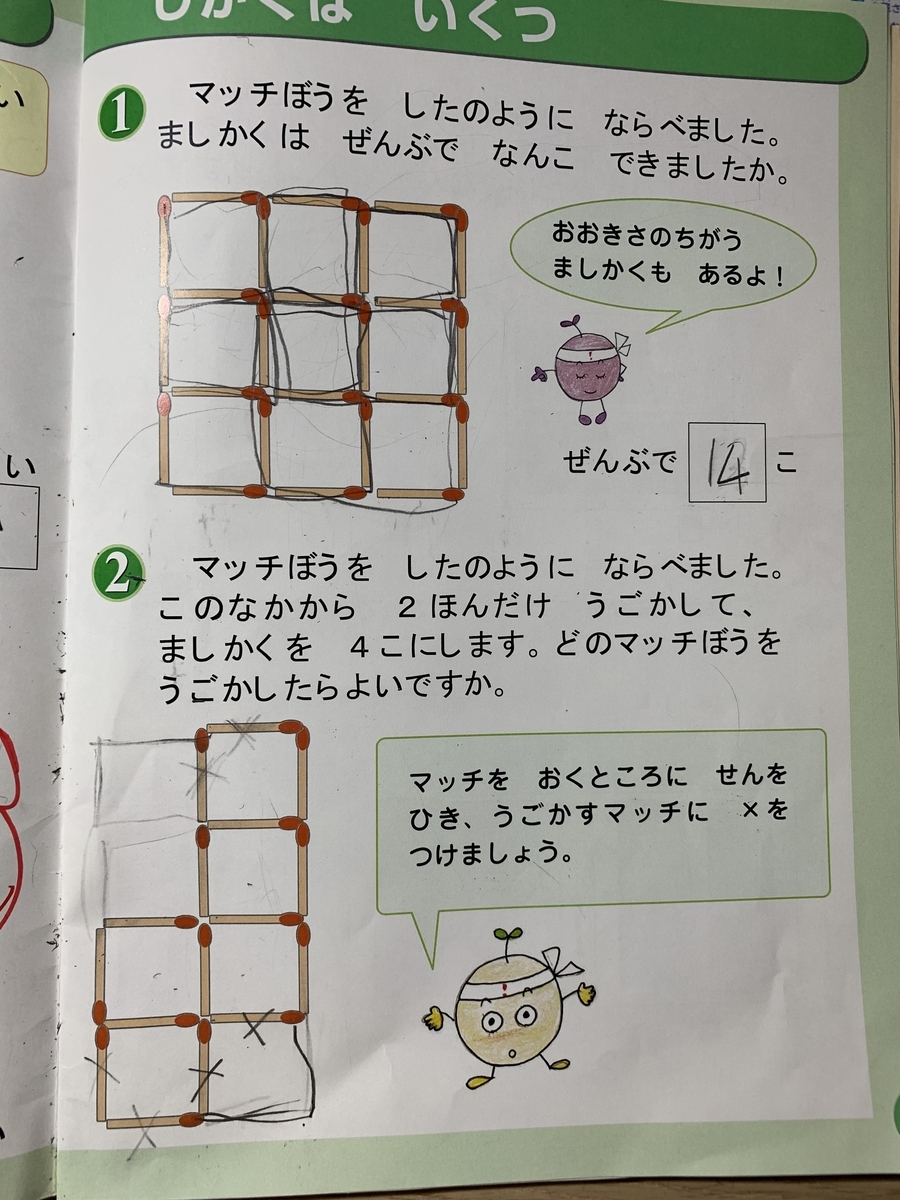 しかくは　いくつ
1　マッチぼうを　したのように　ならべました。
ましかくは　ぜんぶで　なんこ　できましたか。
おおきさのちがう
ましかくも　あるよ！
ぜんぶで 14 こ
2　マッチぼうを　したのように　ならべました。
このなかから　2ほんだけ　うごかして、
ましかくを　4こにします。どのマッチぼうを
うごかしたらよいですか。
マッチを　おくところに　せんを
ひき、うごかすマッチに　×を
つけましょう。
い
い